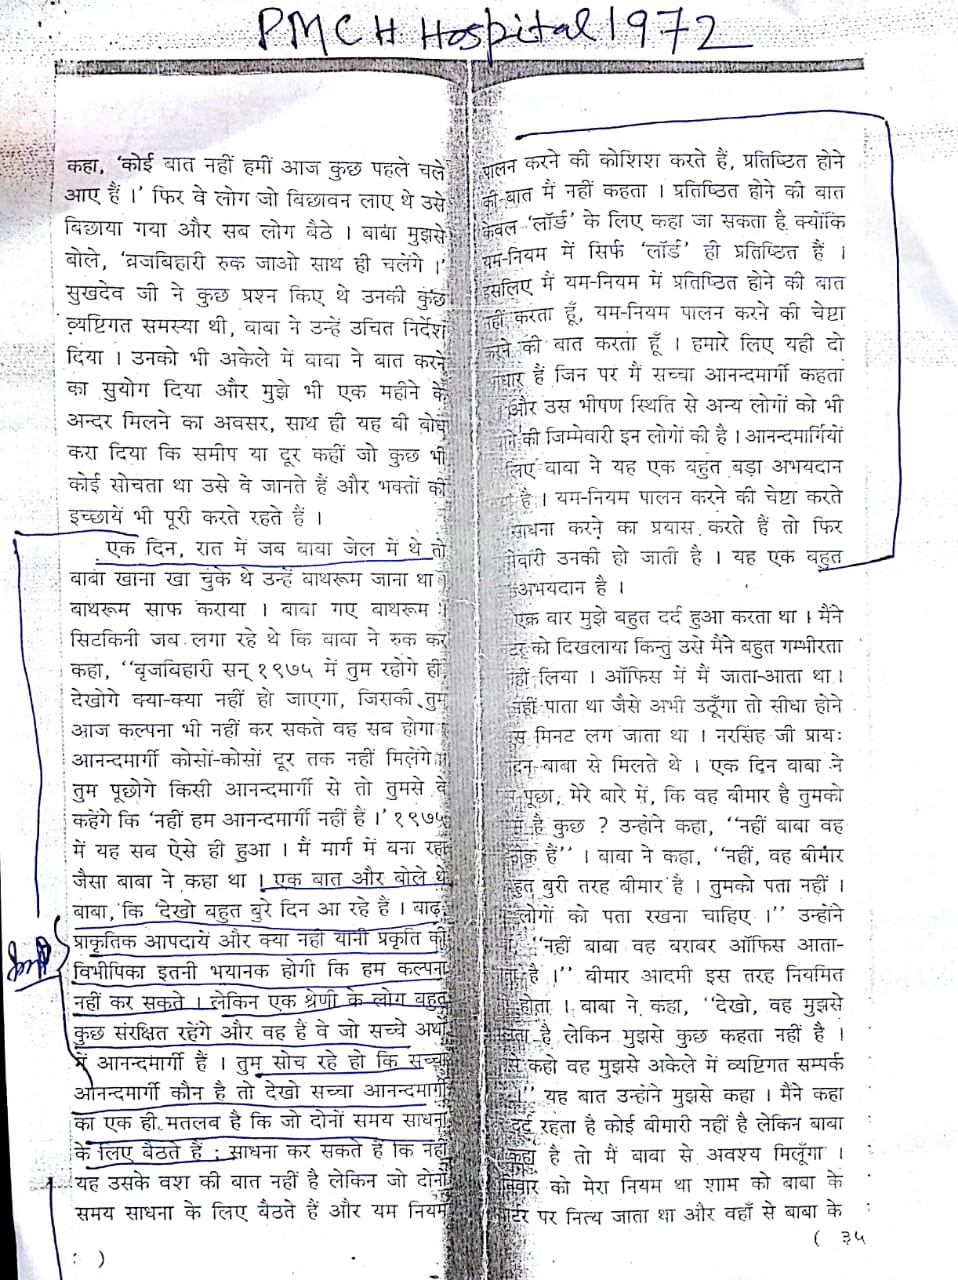 PMCH Hospital 1972
कहा, 'कोई बात नहीं हमीं आज कुछ पहले चले
आए हैं ।' फिर वे लोग जो बिछावन लाए थे उसे
बिछाया गया और सब लोग बैठे । बाबा मुझसे
बोले, 'व्रजबिहारी रुक जाओ साथ ही चलेंगे ।'
सुखदेव जी ने कुछ प्रश्न किए थे उनकी कुछ
व्यष्टिगत समस्या थी, बाबा ने उन्हें उचित निर्देश
दिया । उनको भी अकेले में बाबा ने बात करने
का सुयोग दिया और मुझे भी एक महीने के
अन्दर मिलने का अवसर, साथ ही यह बी बोध
करा दिया कि समीप या दूर कहीं जो कुछ भी
कोई सोचता था उसे वे जानते हैं और भक्तों की
इच्छायें भी पूरी करते रहते हैं ।
एक दिन, रात में जब बाबा जेल में थे तो
बाबा खाना खा चुके थे उन्हें बाथरूम जाना था
बाथरूम साफ कराया । बाबा गए बाथरूम ।
सिटकिनी जब लगा रहे थे कि बाबा ने रुक कर
कहा, ''बृजबिहारी सन् १९७५ में तुम रहोगे ही
देखोगे क्या-क्या नहीं हो जाएगा, जिसकी तुम
आज कल्पना भी नहीं कर सकते वह सब होगा ।
आनन्दमार्गी कोसों-कोसों दूर तक नहीं मिलेंगे ।
तुम पूछोगे किसी आनन्दमार्गी से तो तुमसे वे
कहेंगे कि 'नहीं हम आनन्दमार्गी नहीं हैं ।' १९७५
में यह सब ऐसे ही हुआ । मैं मार्ग में बना रहा
जैसा बाबा ने कहा था । एक बात और बोले थे
बाबा, कि 'देखो बहुत बुरे दिन आ रहे हैं । बाढ़
प्राकृतिक आपदायें और क्या नहीं यानी प्रकृति की
विभीषिका इतनी भयानक होगी कि हम कल्पना
नहीं कर सकते । लेकिन एक श्रेणी के लोग बहुत
कुछ संरक्षित रहेंगे और वह हैं वे जो सच्चे अर्थ
में आनन्दमार्गी हैं । तुम सोच रहे हो कि सच्चा
आनन्दमार्गी कौन है तो देखो सच्चा आनन्दमार्गी
का एक ही मतलब है कि जो दोनों समय साधना
के लिए बैठते हैं ; साधना कर सकते हैं कि नहीं
यह उसके वश की बात नहीं है लेकिन जो दोनों
समय साधना के लिए बैठते हैं और यम नियम
: )
पालन करने की कोशिश करते हैं, प्रतिष्ठित होने
की बात मैं नहीं कहता । प्रतिष्ठित होने की बात
केवल 'लॉर्ड' के लिए कहा जा सकता है क्योंकि
यम-नियम में सिर्फ 'लॉर्ड' ही प्रतिष्ठित हैं ।
इसलिए मैं यम-नियम में प्रतिष्ठित होने की बात
नहीं करता हूँ, यम-नियम पालन करने की चेष्टा
करने की बात करता हूँ । हमारे लिए यही दो
हैं जिन पर मैं सच्चा आनन्दमार्गी कहता
और उस भीषण स्थिति से अन्य लोगों को भी
की जिम्मेवारी इन लोगों की है । आनन्दमार्गियों
लिए बाबा ने यह एक बहुत बड़ा अभयदान
है । यम-नियम पालन करने की चेष्टा करते
साधना करने का प्रयास करते हैं तो फिर
उनकी हो जाती है । यह एक बहुत
अभयदान है ।
एक बार मुझे बहुत दर्द हुआ करता था । मैंने
को दिखलाया किन्तु उसे मैंने बहुत गम्भीरता
नहीं लिया । ऑफिस में मैं जाता-आता था ।
नहीं पाता था जैसे अभी उठूँगा तो सीधा होने
मिनट लग जाता था । नरसिंह जी प्रायः
दिन बाबा से मिलते थे । एक दिन बाबा ने
पूछा, मेरे बारे में, कि वह बीमार है तुमको
है कुछ ? उन्होंने कहा, ''नहीं बाबा वह
ठीक हैं'' । बाबा ने कहा, ''नहीं, वह बीमार
बुरी तरह बीमार है । तुमको पता नहीं ।
लोगों को पता रखना चाहिए ।'' उन्होंने
''नहीं बाबा वह बराबर ऑफिस आता-
है ।'' बीमार आदमी इस तरह नियमित
होता । बाबा ने कहा, ''देखो, वह मुझसे
है लेकिन मुझसे कुछ कहता नहीं है ।
कहो वह मुझसे अकेले में व्यष्टिगत सम्पर्क
।'' यह बात उन्होंने मुझसे कहा । मैंने कहा
दर्द रहता है कोई बीमारी नहीं है लेकिन बाबा
कहा है तो मैं बाबा से अवश्य मिलूँगा ।
को मेरा नियम था शाम को बाबा के
पर नित्य जाता था और वहाँ से बाबा के
( ३५